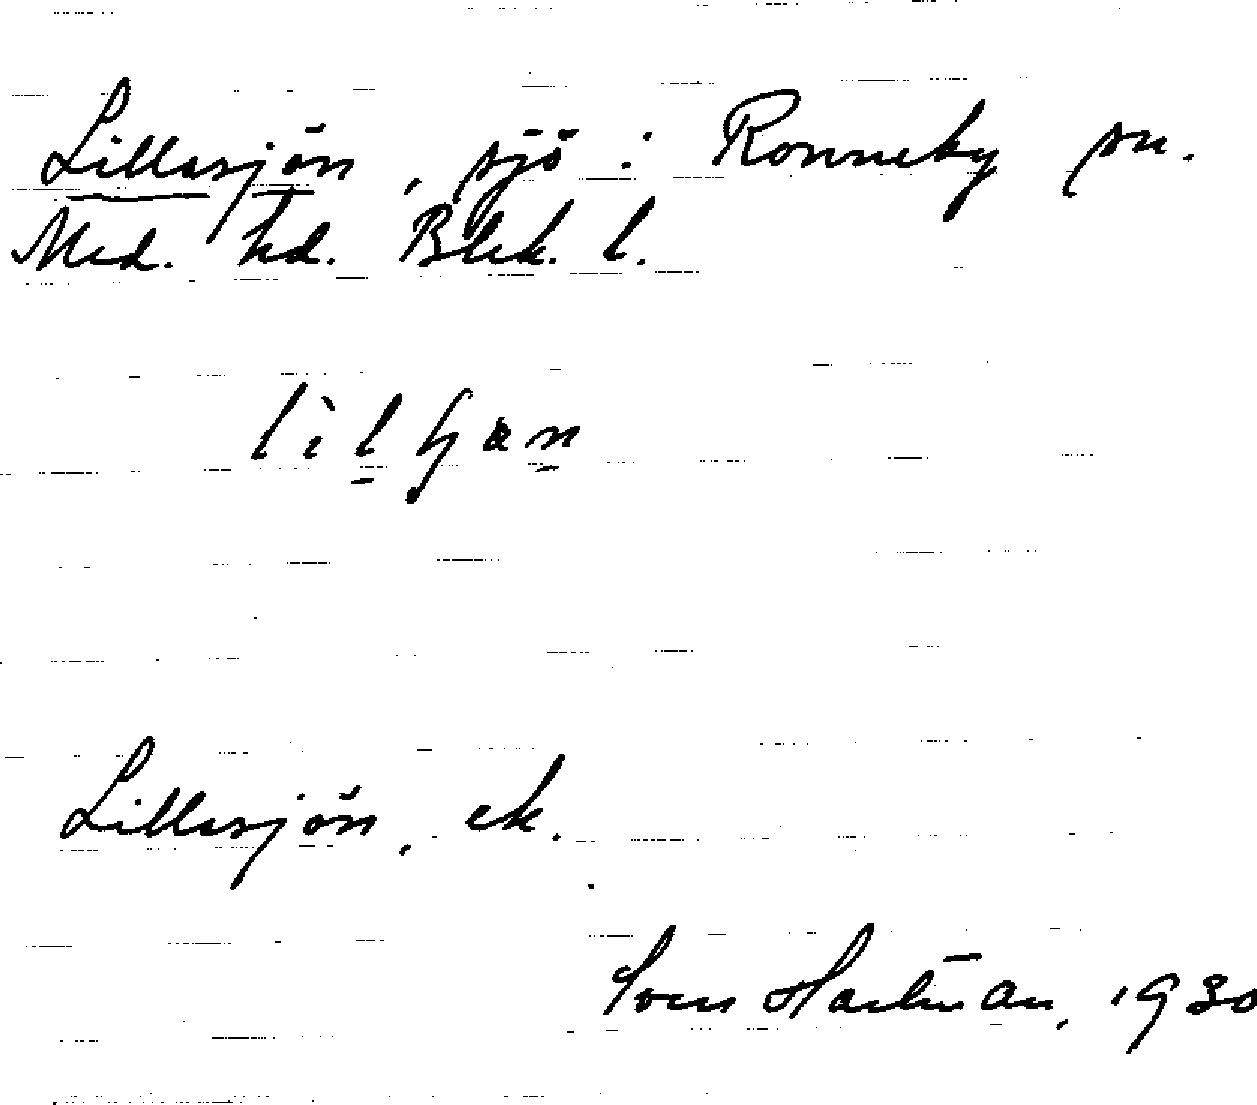 Lillasjön, sjö i Ronneby sn.
Med. hd. Blek. l.
Lillasjön, ek.
Sven Hartman, 1930